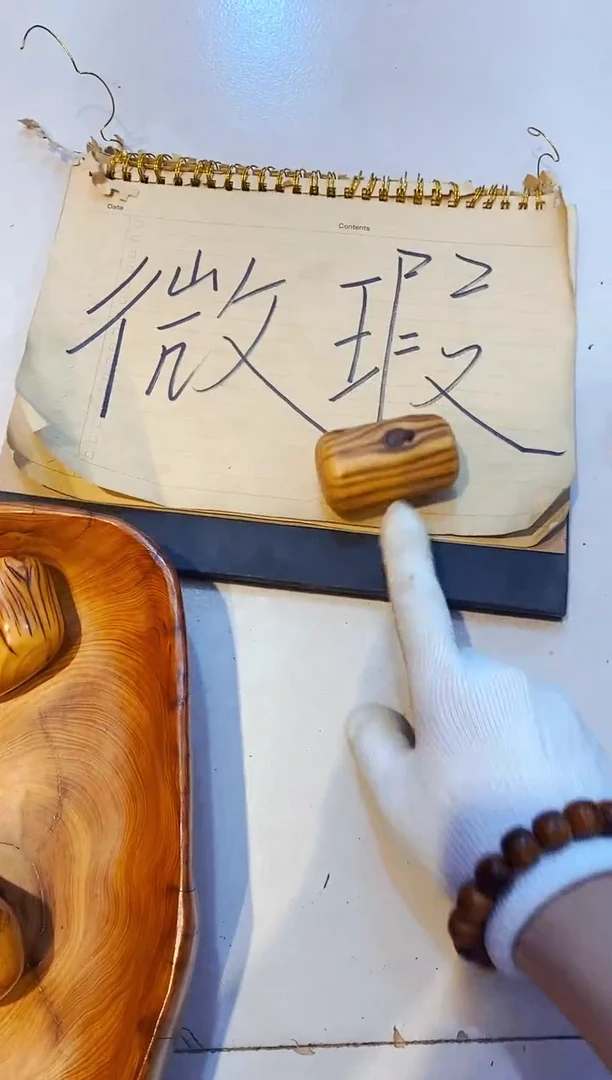 Date
Contents
微瑕